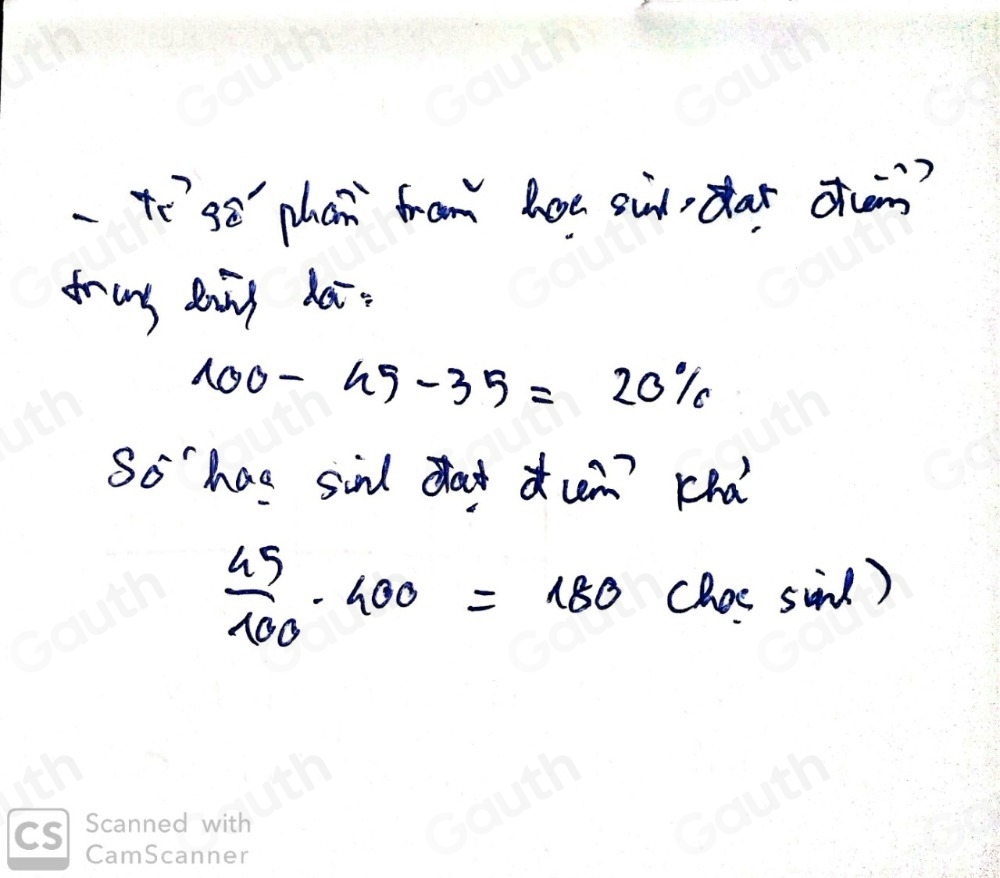 - Tỉ số phần trăm học sinh đạt điểm
trung bình là:
100 - 45 - 35 = 20%
Số học sinh đạt điểm khá
45/100 . 400 = 180 (học sinh)
CS Scanned with
CamScanner
Gauth